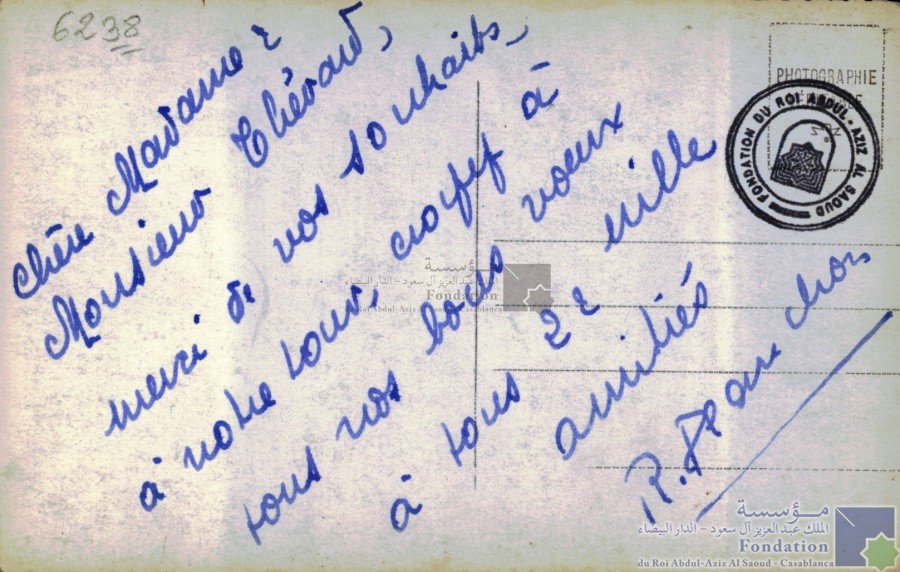 6238
Chère Madame &
Monsieur Thévard,
merci de vos souhaits,
à notre tour, croyez à
tous nos bons voeux
à tous & mille
amitiés
R.
PHOTOGRAPHIE
FONDATION DU ROI ABDUL-AZIZ AL SAOUD
مؤسسة
الملك عبد العزيز آل سعود - الدار البيضاء
Fondation
du Roi Abdul-Aziz Al Saoud - Casablanca
مؤسسة
الملك عبد العزيز آل سعود - الدار البيضاء
Fondation
du Roi Abdul-Aziz Al Saoud - Casablanca